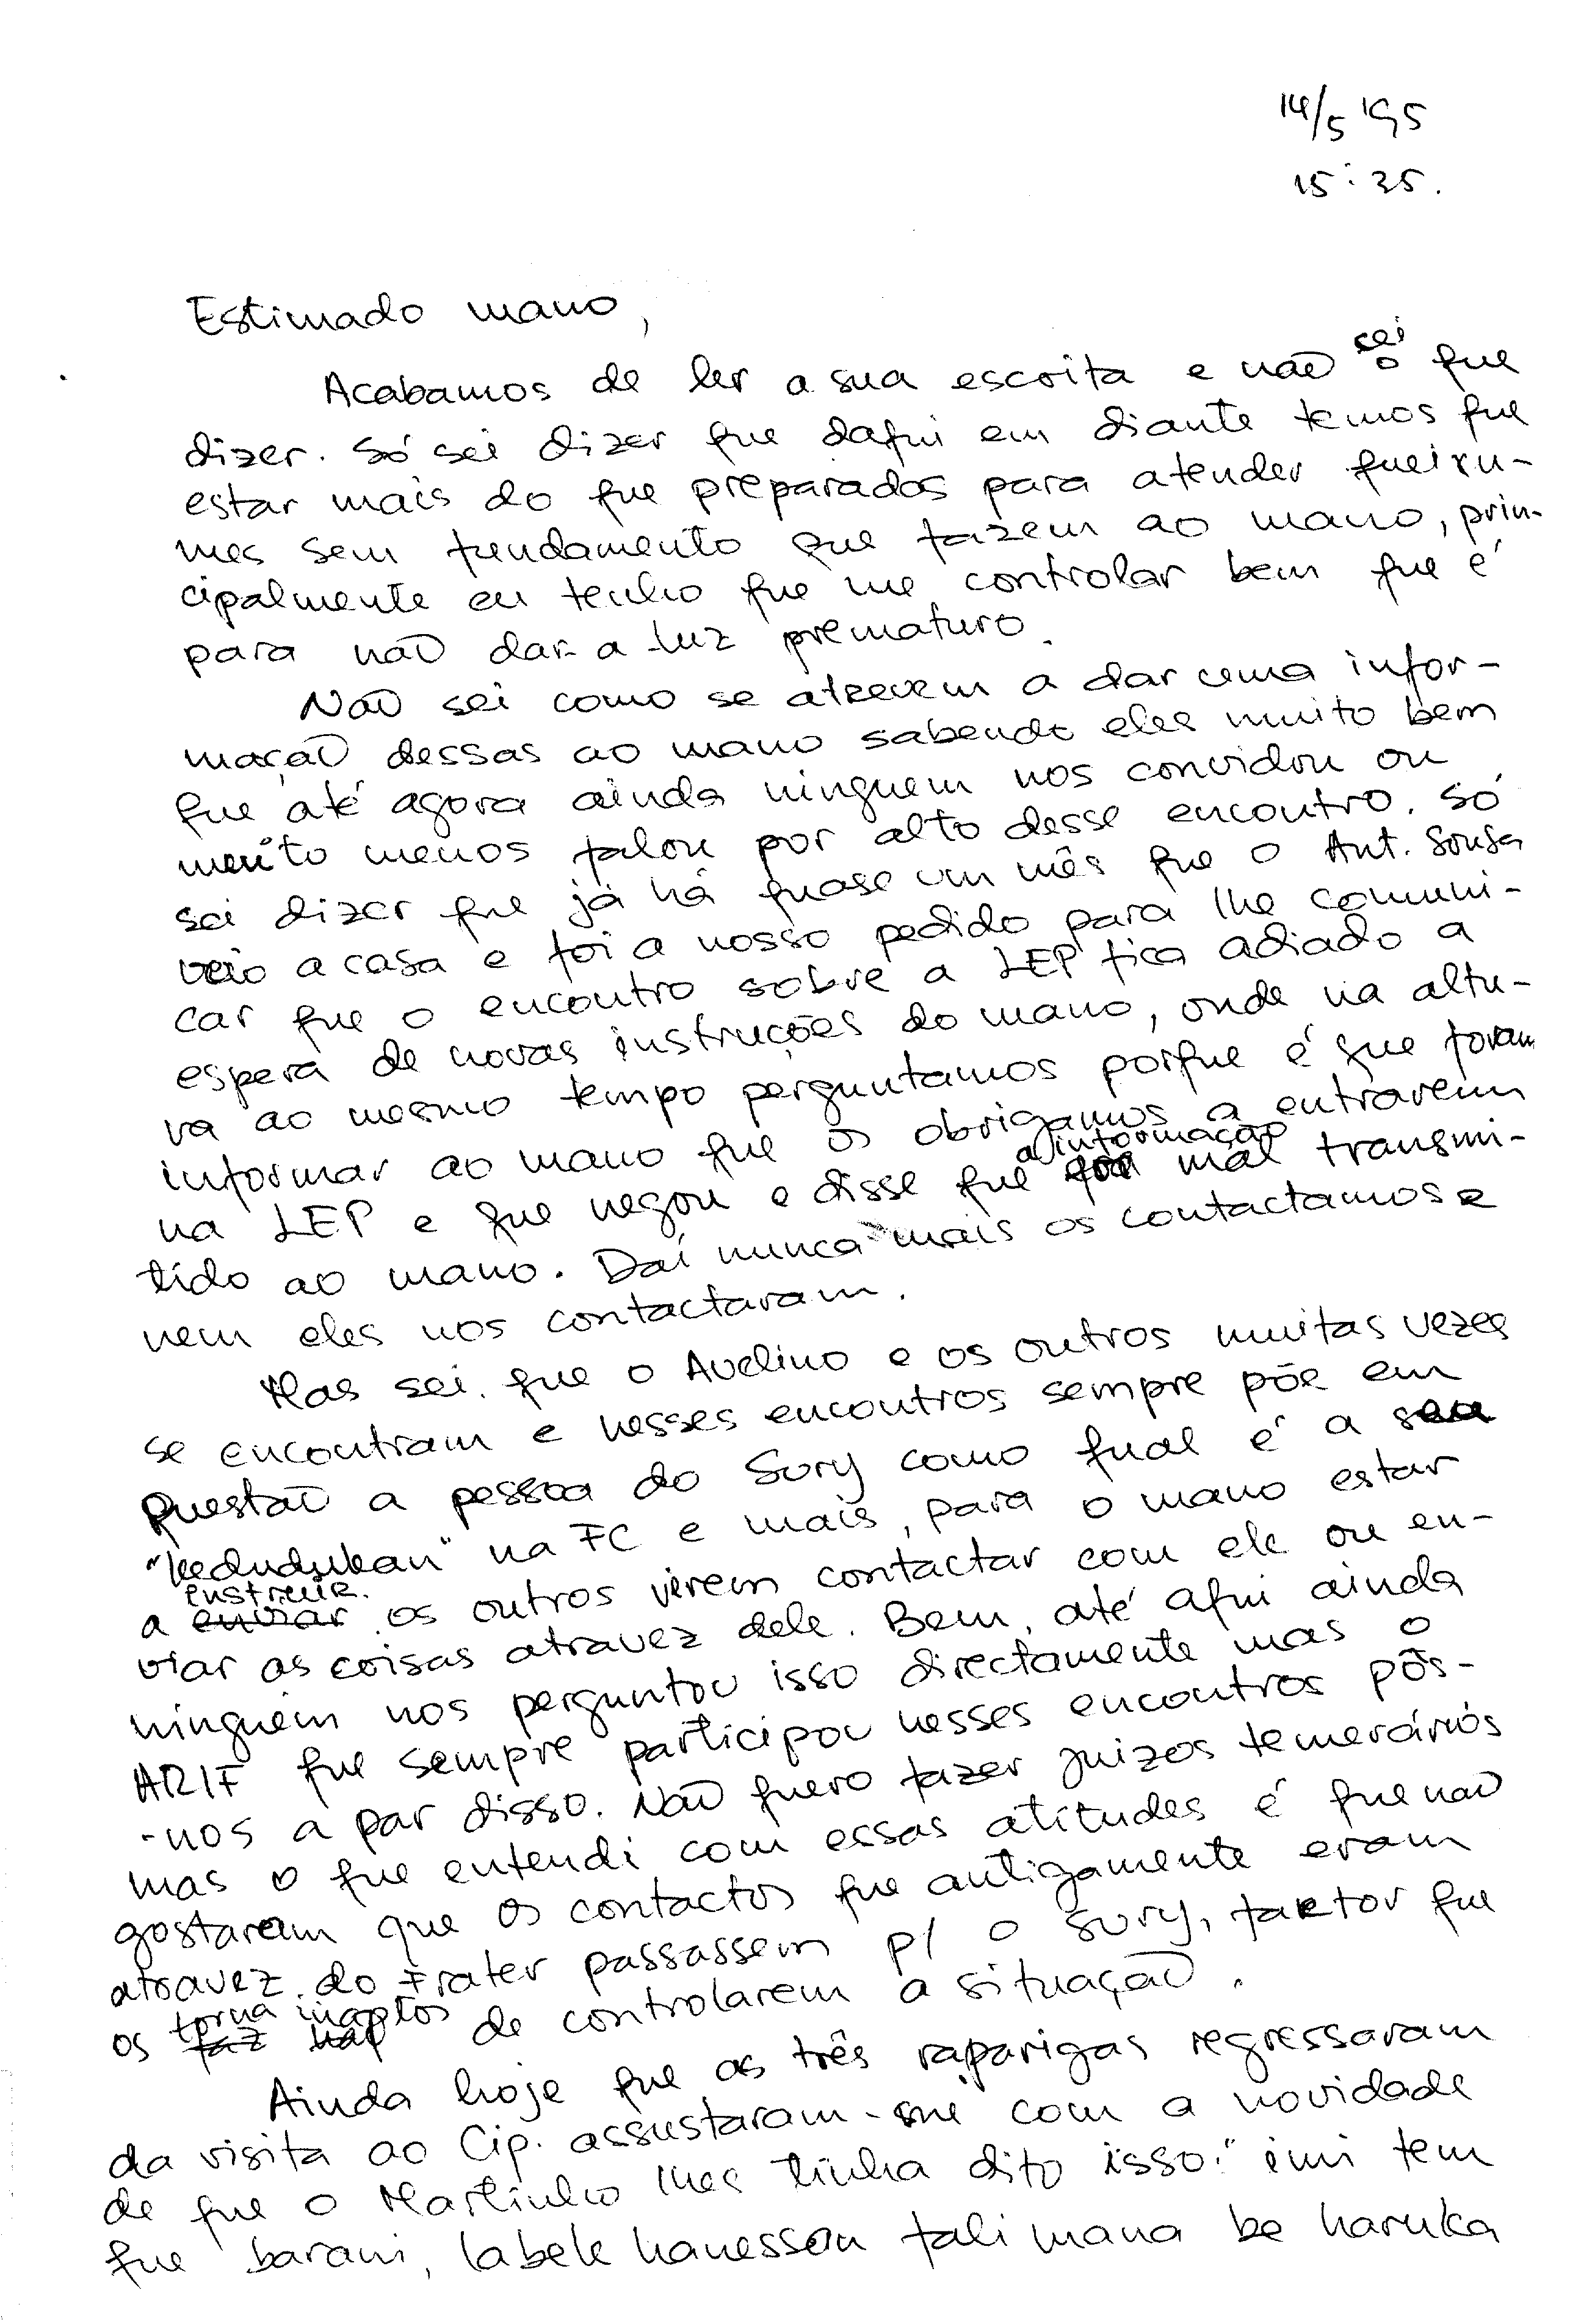 14/5 '95
15:35.
Estimado mano,
Acabamos de ler a sua escrita e não sei o que
dizer. Só sei dizer que daqui em diante temos que
estar mais do que preparados para atender queixu-
mes sem fundamento que fazem ao mano, prin-
cipalmente eu tenho que me controlar bem que é
para não dar-a-luz prematuro.
Não sei como se atrevem a dar uma infor-
mação dessas ao mano sabendo eles muito bem
que até agora ainda ninguem nos convidou ou
muito menos falou por alto desse encontro. Só
sei dizer que já há quase um mês que o Ant. Sousa
veio a casa e foi a nosso pedido para lhe comuni-
car que o encontro sobre a LEP fica adiado a
espera de novas instruções do mano, onde na altu-
ra ao mesmo tempo perguntamos porque é que foram
informar ao mano que os obrigamos a entrarem
na LEP e que negou e disse que a informação mal transmi-
tido ao mano. Daí nunca mais os contactamos e
nem eles nos contactaram.
Mas sei que o Avelino e os outros muitas vezes
se encontram e nesses encontros sempre põe em
questão a pessoa do Sury como qual é a sua
"kedudukan" na FC e mais, para o mano estar
a enviar instruir os outros virem contactar com ele ou en-
viar as coisas atravez dele. Bem, até aqui ainda
ninguem nos perguntou isso directamente mas o
ARIF que sempre participou nesses encontros pôs-
-nos a par disso. Não quero fazer juizos temerários
mas o que entendi com essas atitudes é que não
gostaram que os contactos que antigamente eram
atravez do Frater passassem p/ o Sury, factor que
os torna inaptos de controlarem a situação.
Ainda hoje que as três raparigas regressaram
da visita ao Cip. assustaram-me com a novidade
de que o Martinho lhes tinha dito isso: "imi tem
que barani, labele hanessan fali mana be haruka